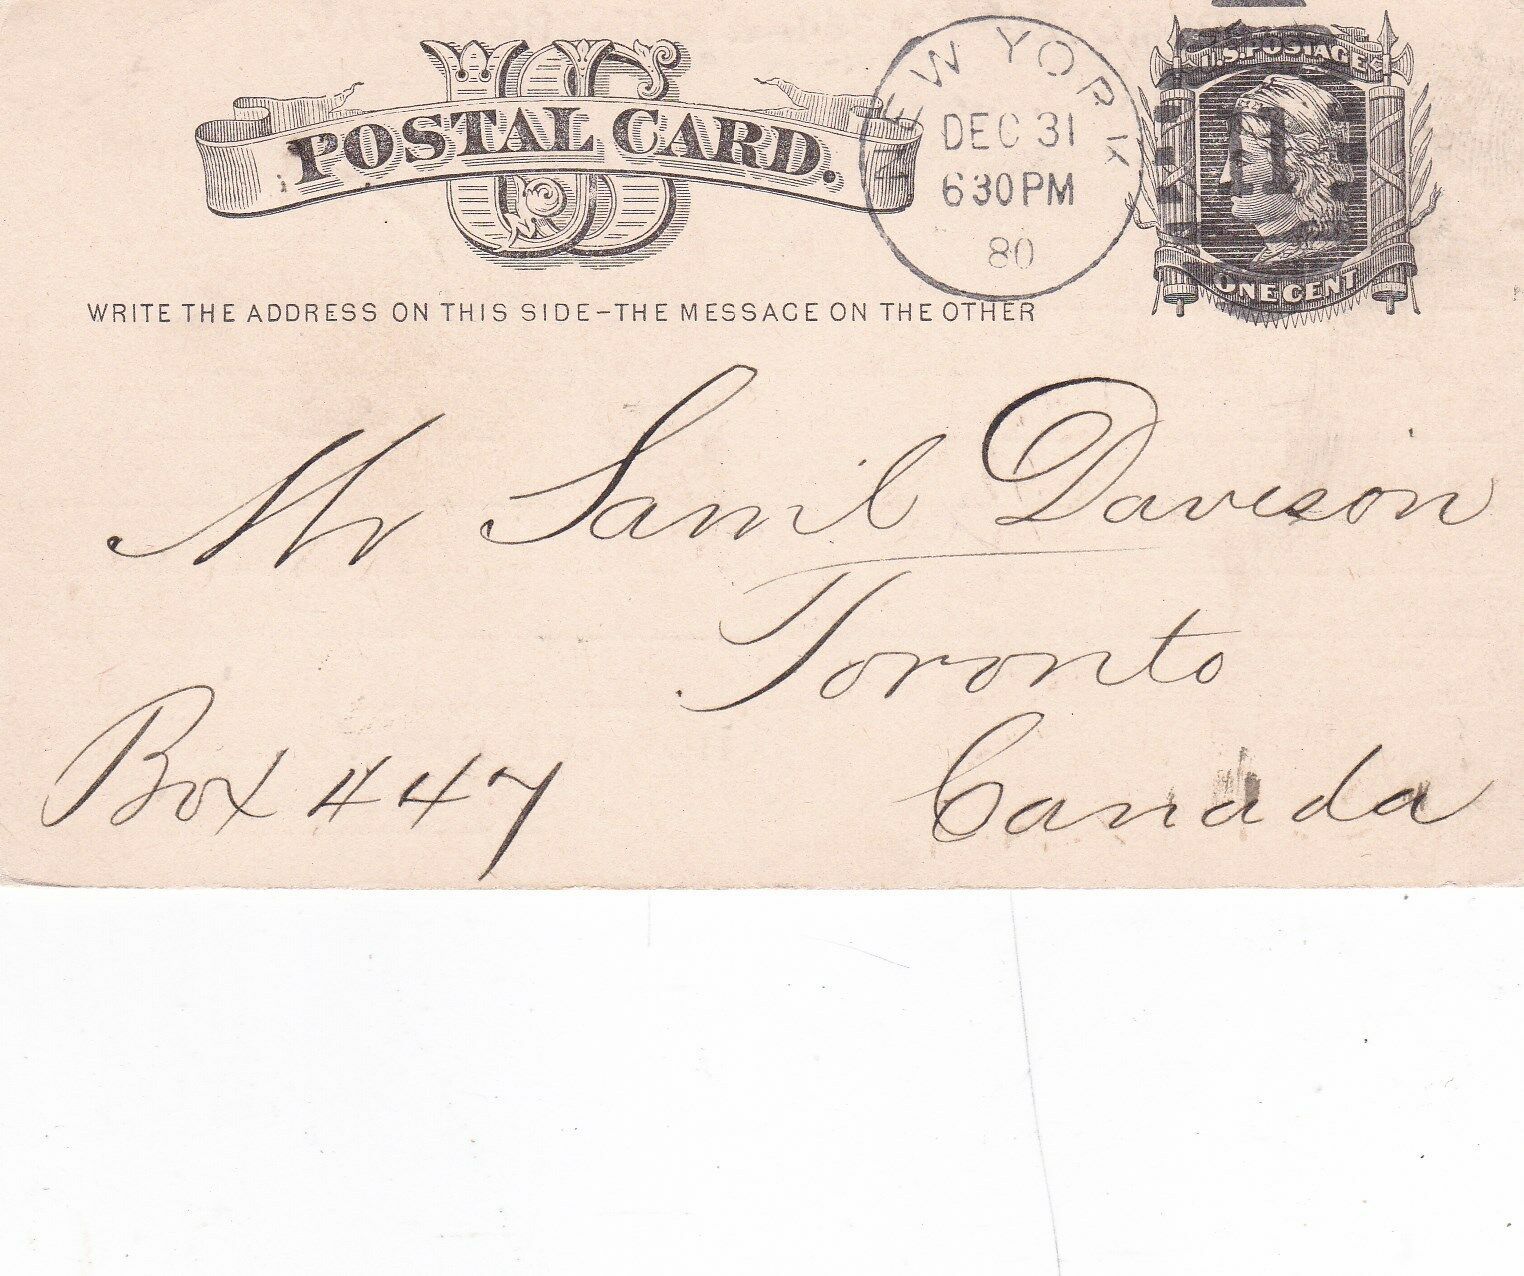 US
POSTAL CARD.
NEW YORK
DEC 31
630PM
80
U.S. POSTAGE
ONE CENT
WRITE THE ADDRESS ON THIS SIDE-THE MESSAGE ON THE OTHER
Mr Saml Davison
Toronto
Box 447
Canada